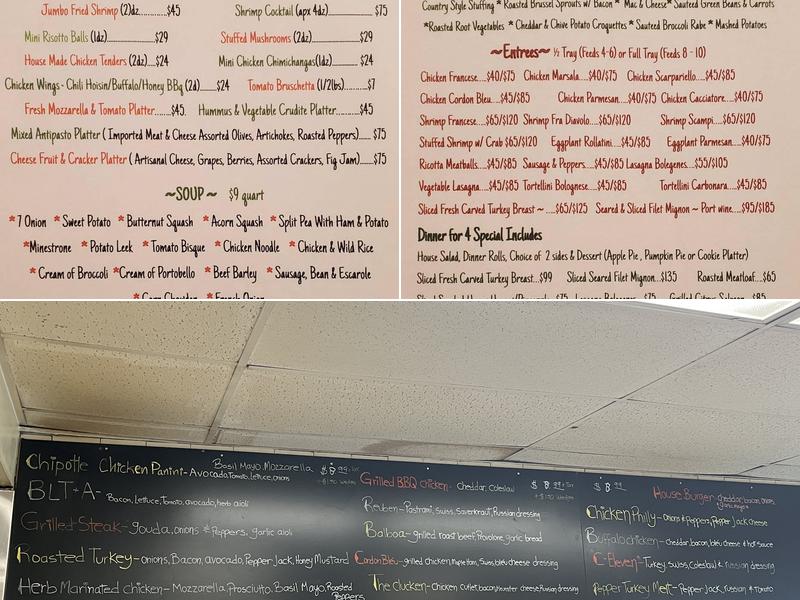 Jumbo Fried Shrimp (2)dz............$45 Shrimp Cocktail (apx 4dz) ............$75
Mini Risotto Balls (1dz)................$29 Stuffed Mushrooms (2dz)................$29
House Made Chicken Tenders (2dz)....$24 Mini Chicken Chimichangas(1dz).......... $24
Chicken Wings - Chili Hoisin/Buffalo/Honey BBq (2d)......$24 Tomato Bruschetta (1/2lbs)..........$7
Fresh Mozzarella & Tomato Platter......$45. Hummus & Vegetable Crudite Platter..........$45
Mixed Antipasto Platter ( Imported Meat & Cheese Assorted Olives, Artichokes, Roasted Peppers)..... $75
Cheese Fruit & Cracker Platter ( Artisanal Cheese, Grapes, Berries, Assorted Crackers, Fig Jam)......$75
~SOUP ~ $9 quart
*7 Onion *Sweet Potato *Butternut Squash *Acorn Squash *Split Pea With Ham & Potato
*Minestrone *Potato Leek *Tomato Bisque *Chicken Noodle *Chicken & Wild Rice
*Cream of Broccoli *Cream of Portobello *Beef Barley *Sausage, Bean & Escarole
*Corn Chowder *French Onion
Country Style Stuffing * Roasted Brussel Sprouts w/ Bacon * Mac & Cheese* Sauteed Green Beans & Carrots
*Roasted Root Vegetables * Cheddar & Chive Potato Croquettes * Sauteed Broccoli Rabe * Mashed Potatoes
~Entrees~ ½ Tray (Feeds 4-6) or Full Tray (Feeds 8 - 10)
Chicken Francese....$40/$75 Chicken Marsala....$40/$75 Chicken Scarpariello....$45/$85
Chicken Cordon Bleu....$45/$85 Chicken Parmesan....$40/$75 Chicken Cacciatore....$40/$75
Shrimp Francese...$65/$120 Shrimp Fra Diavolo....$65/$120 Shrimp Scampi....$65/$120
Stuffed Shrimp w/ Crab $65/$120 Eggplant Rollatini....$45/$85 Eggplant Parmesan....$40/$75
Ricotta Meatballs....$45/$85 Sausage & Peppers....$45/$85 Lasagna Bolegenes...$55/$105
Vegetable Lasagna....$45/$85 Tortellini Bolognese...$45/$85 Tortellini Carbonara....$45/$85
Sliced Fresh Carved Turkey Breast ~ ....$65/$125 Seared & Sliced Filet Mignon ~ Port wine....$95/$185
Dinner for 4 Special Includes
House Salad, Dinner Rolls, Choice of 2 sides & Dessert (Apple Pie , Pumpkin Pie or Cookie Platter)
Sliced Fresh Carved Turkey Breast...$99 Sliced Seared Filet Mignon...$135 Roasted Meatloaf...$65
$75 Lasagna Bolegenes $75 Grilled Citrus Salmon $85
Chipotle Chicken Panini-Avocado,Tomato,Lettuce,onions
Basil Mayo.Mozzarella
BLT+A- Bacon, Lettuce,Tomato, avocado,herb aioli
Grilled Steak-gouda,onions & Peppers, garlic aioli
Roasted Turkey-onions,Bacon, avocado,Pepper Jack, Honey Mustard
Herb Marinated chicken-Mozzarella,Prosciutto, Basil Mayo,Roasted
Peppers
Grilled BBQ chicken- cheddar, coleslaw
Reuben-Pastrami, Swiss, Saverkraut, Russian dressing
Balboa-grilled roast beef, Provolone, garlic bread
Cordon Bleu-grilled chicken, Maple Ham, Swiss, bleu cheese dressing
The Clucker-Chicken cutlet, bacon, munster cheese, Russian dressing
House Burger-cheddar, bacon, onions
Chicken Philly-Onions & Peppers, Pepper Jack cheese
Buffalo chicken-cheddar, bacon, bleu cheese & hot sauce
"C-Eleven"-Turkey, swiss, Coleslaw & russian dressing
Pepper Turkey Melt-Pepper Jack, russian & Tomato